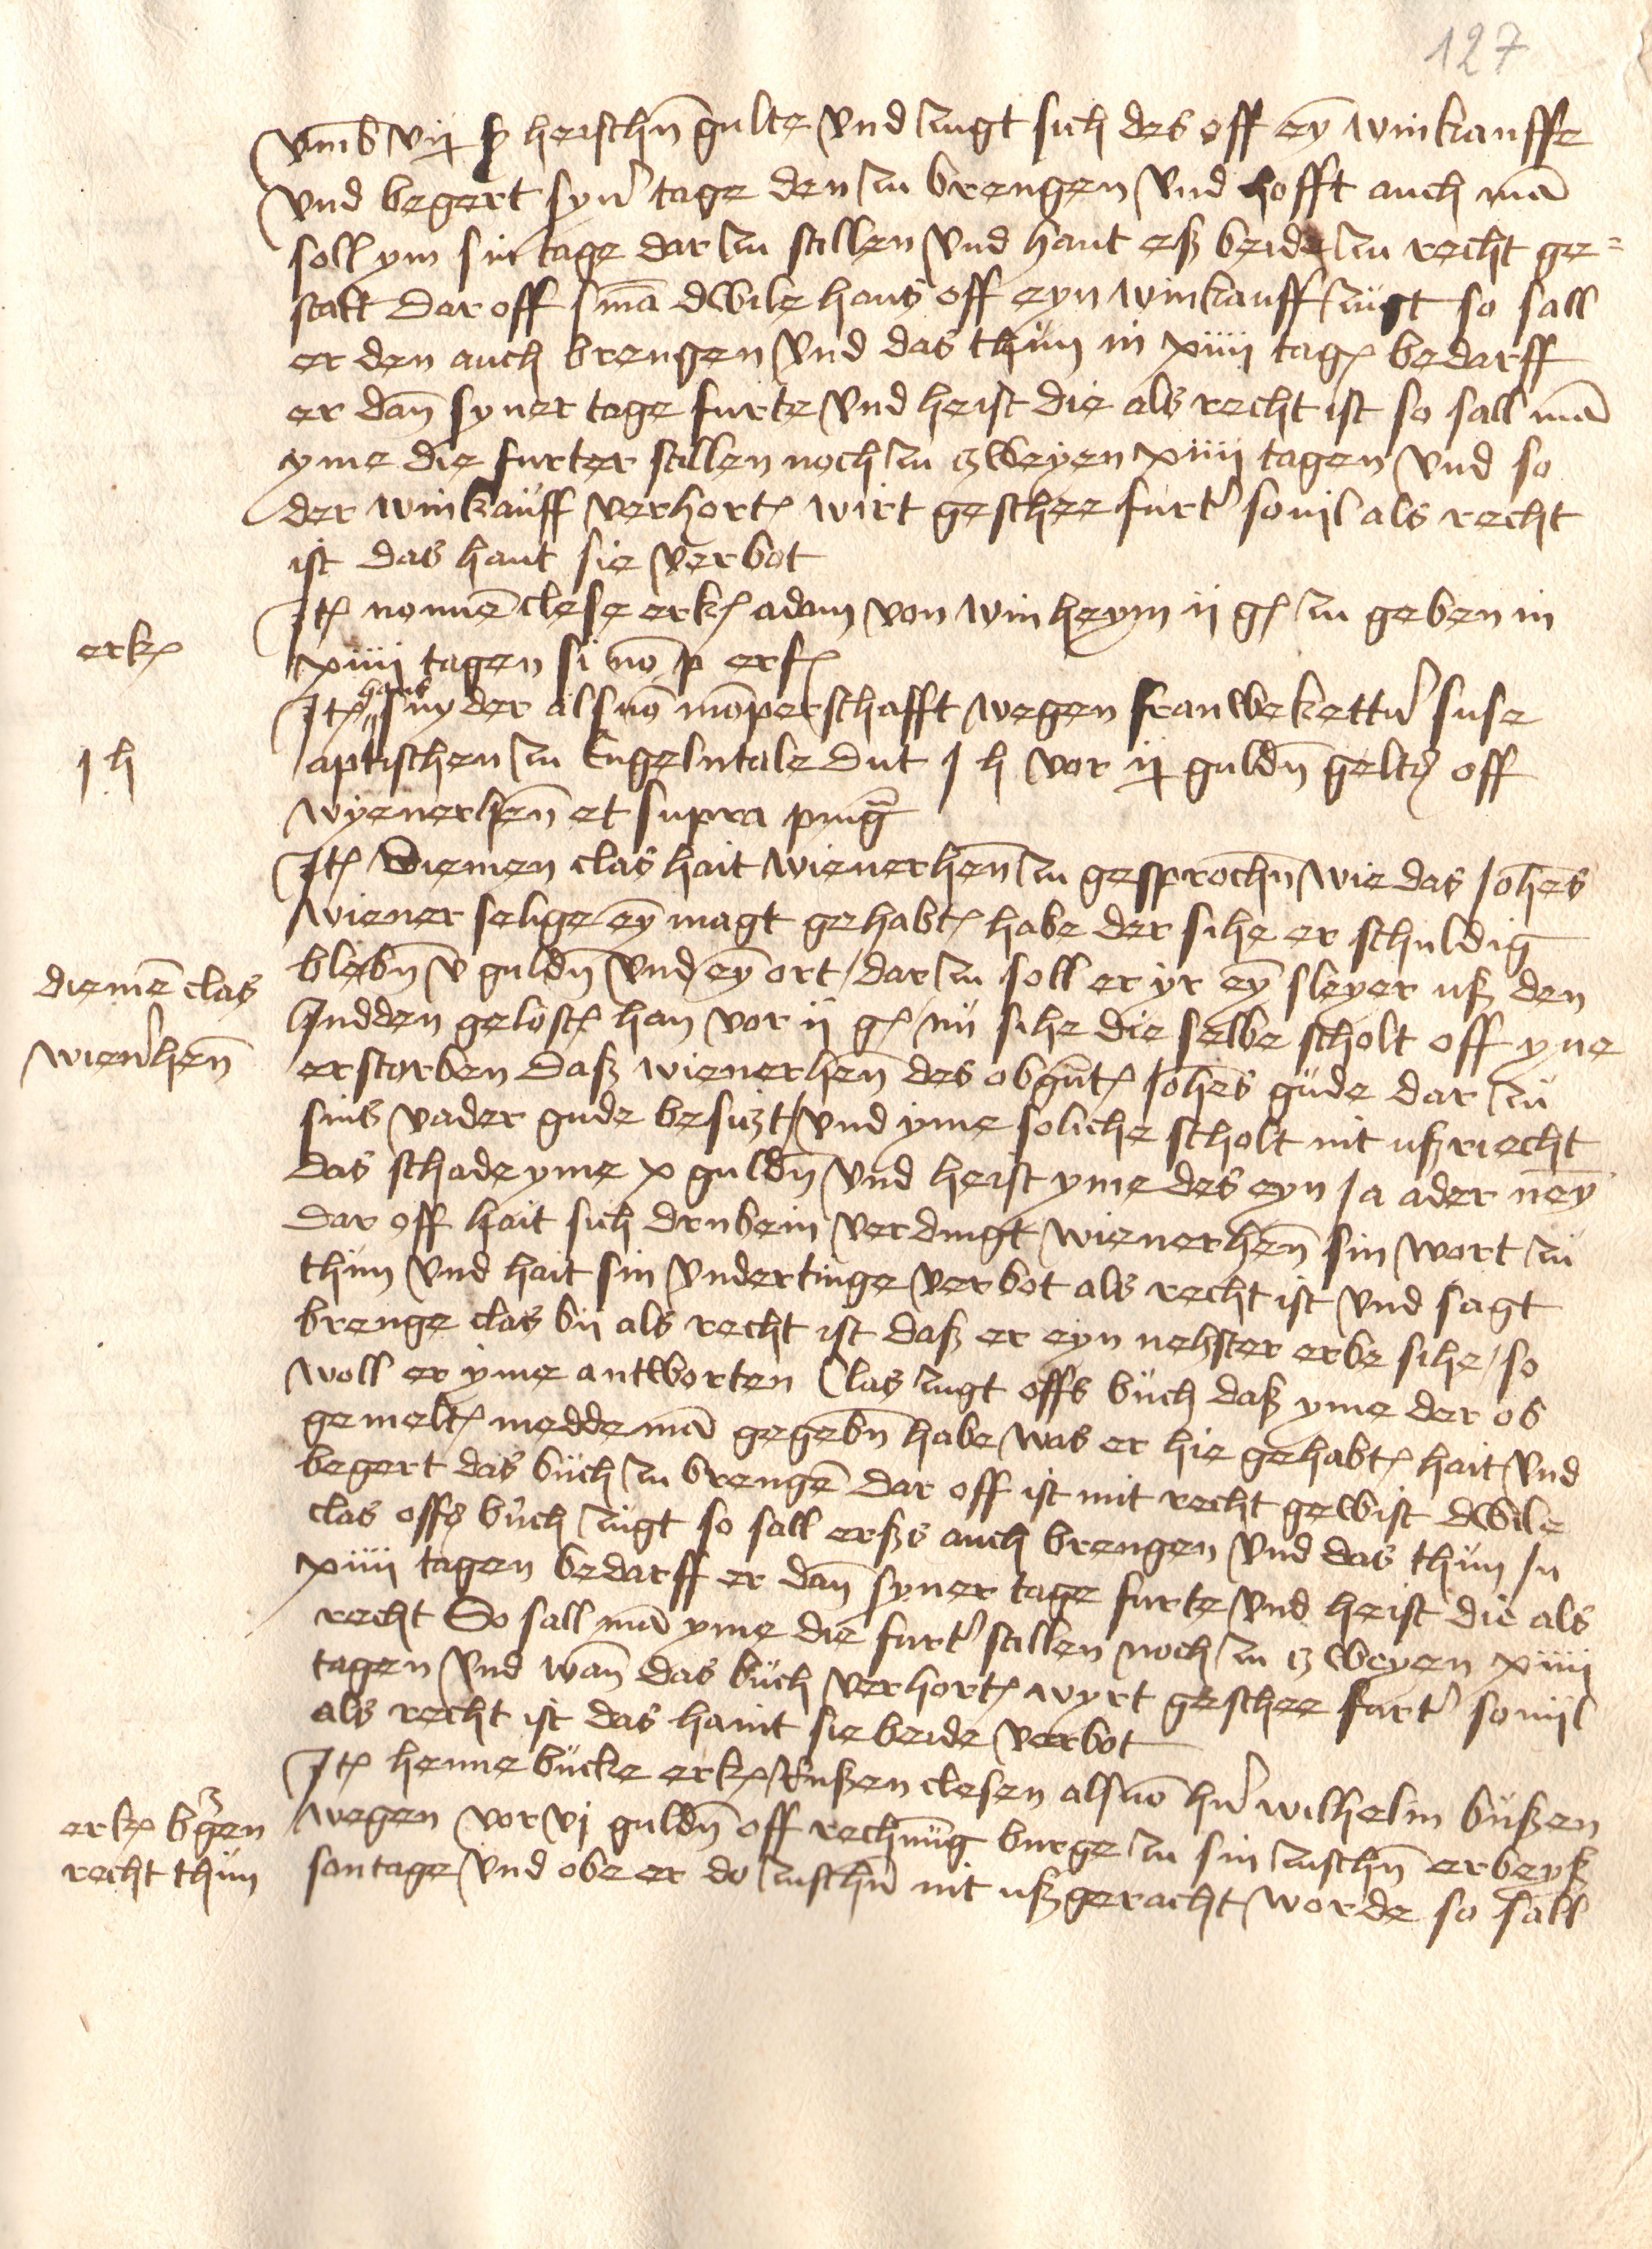 127
vmb vij ß heischn̄ gulte vnd zugt sich des off eȳ winkauffe
vnd begert syn' tage den zu brengen vnd hofft auch mā
soll ym sin tage dar zu stillen vnd hant eß beide zu recht ge=
stalt Dar off s mā dwile hans off eyn winkauff zugt so sall
er den auch brengen vnd das thun in xiiii tag bedarff
er dan̄ syner tage furte vnd heist die als recht ist so sall mā
yme die furter stillen noch zu zweyen xiiii tagen vnd so
der winkauff verhort wirt geschee furt' souil als recht
ist das hant sie verbot
erk
Jt nonnē clese erk adam von winheym ij g zu geben in
xiiii tagen si nō p erf
hans
Jt snyder als vō mōperschafft wegen frauwe kettn' suse
j h
aptischen zu Engelntale dut j h vor ij guldn̄ gelts off
wyenerhen̄ et supra pinḡ
Jt Diemen clas hait wienerhen̄ zu gesprochn̄ wie das Johēs
wiener selige eȳ magt gehabt habe der sihe er schuldig
diemē clas
blebn̄ v guldn̄ vnd eȳ ort / dar zu soll er yr eȳ sleyer uß den
wien'hen̄
Judden gelost han vor ij g nu sihe die selbe scholt off yne
erstorben daß wienerhen̄ des obgn̄t Johēs gude dar zu
sins vader gude besitzt / vnd yme soliche scholt nit ußriecht
das schade yme x guldn̄ vnd heist yme des eyn Ja ader neȳ
dar off hait sich drubein verdingt wienerhen̄ sin wort zu
thun vnd hait sin vndertinge verbot als recht ist vnd sagt
brenge clas bij als recht ist daß er eyn nehster erbe sihe / so
woll er yme antworten Clas zugt offs buch daß yme der ob
gemelt meddemā gegebn̄ habe was er hie gehabt hait vnd
begert das buch zu brengē dar off ist mit recht gewist dwile
clas offs buch zugt so sall erßs auch brengen vnd das thun Jn
xiiii tagen bedarff er dan̄ syner tage furte vnd heist die als
recht So sall mā yme die furt' stillen noch zu zweyen xiiii
tagen vnd wan̄ das buch verhort wyrt geschee furt' souijl
als recht ist das haint sie beide verbot
Jt henne bucke erk Rußen clesen als vō hn' wilhelm bußen
erk bgen
wegen vor vj guldn̄ off rechnūg burge zu sin zuschn̄ erbeyß
recht thun
sontage vnd obe er do zuschn̄ nit ußgeracht worde so sall